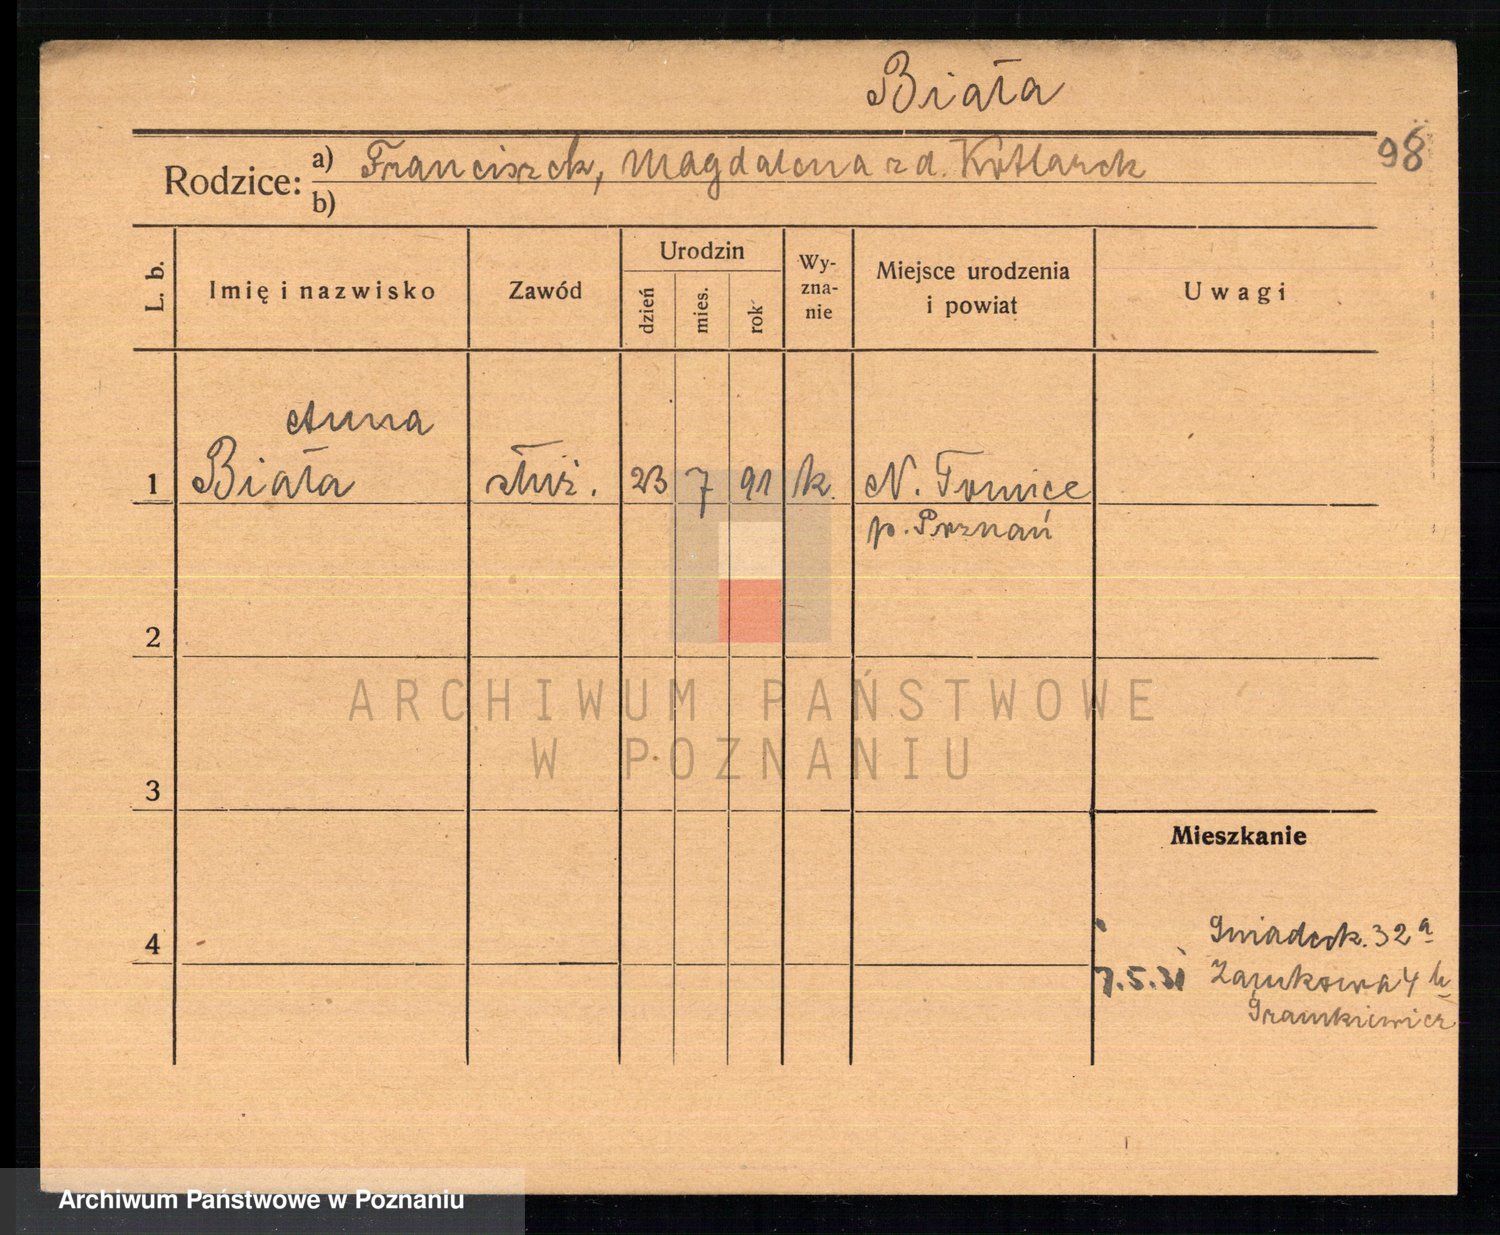 Biała
98
Rodzice: a) Franciszek, Magdalena z d. Kotlarek
b)
L. b.
Imię i nazwisko
Zawód
Urodzin
dzień
mies.
rok
Wy-
zna-
nie
Miejsce urodzenia
i powiat
Uwagi
Anna
1 Biała służ. 23 7 91 k. N. Tomice
p. Poznań
2
ARCHIWUM PAŃSTWOWE
W POZNANIU
3
Mieszkanie
4
Gniadeck. 32a
7.5.31 Zamkowa 4
Archiwum Państwowe w Poznaniu